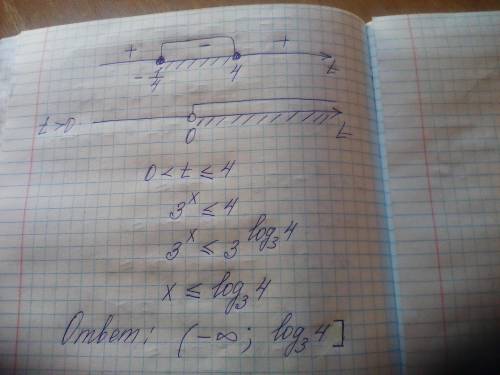 + - +
- 7/4 4 t
t>0 0 t
0 < t ≤ 4
3^x ≤ 4
3^x ≤ 3^log₃4
x ≤ log₃4
Ответ: (-∞; log₃4]